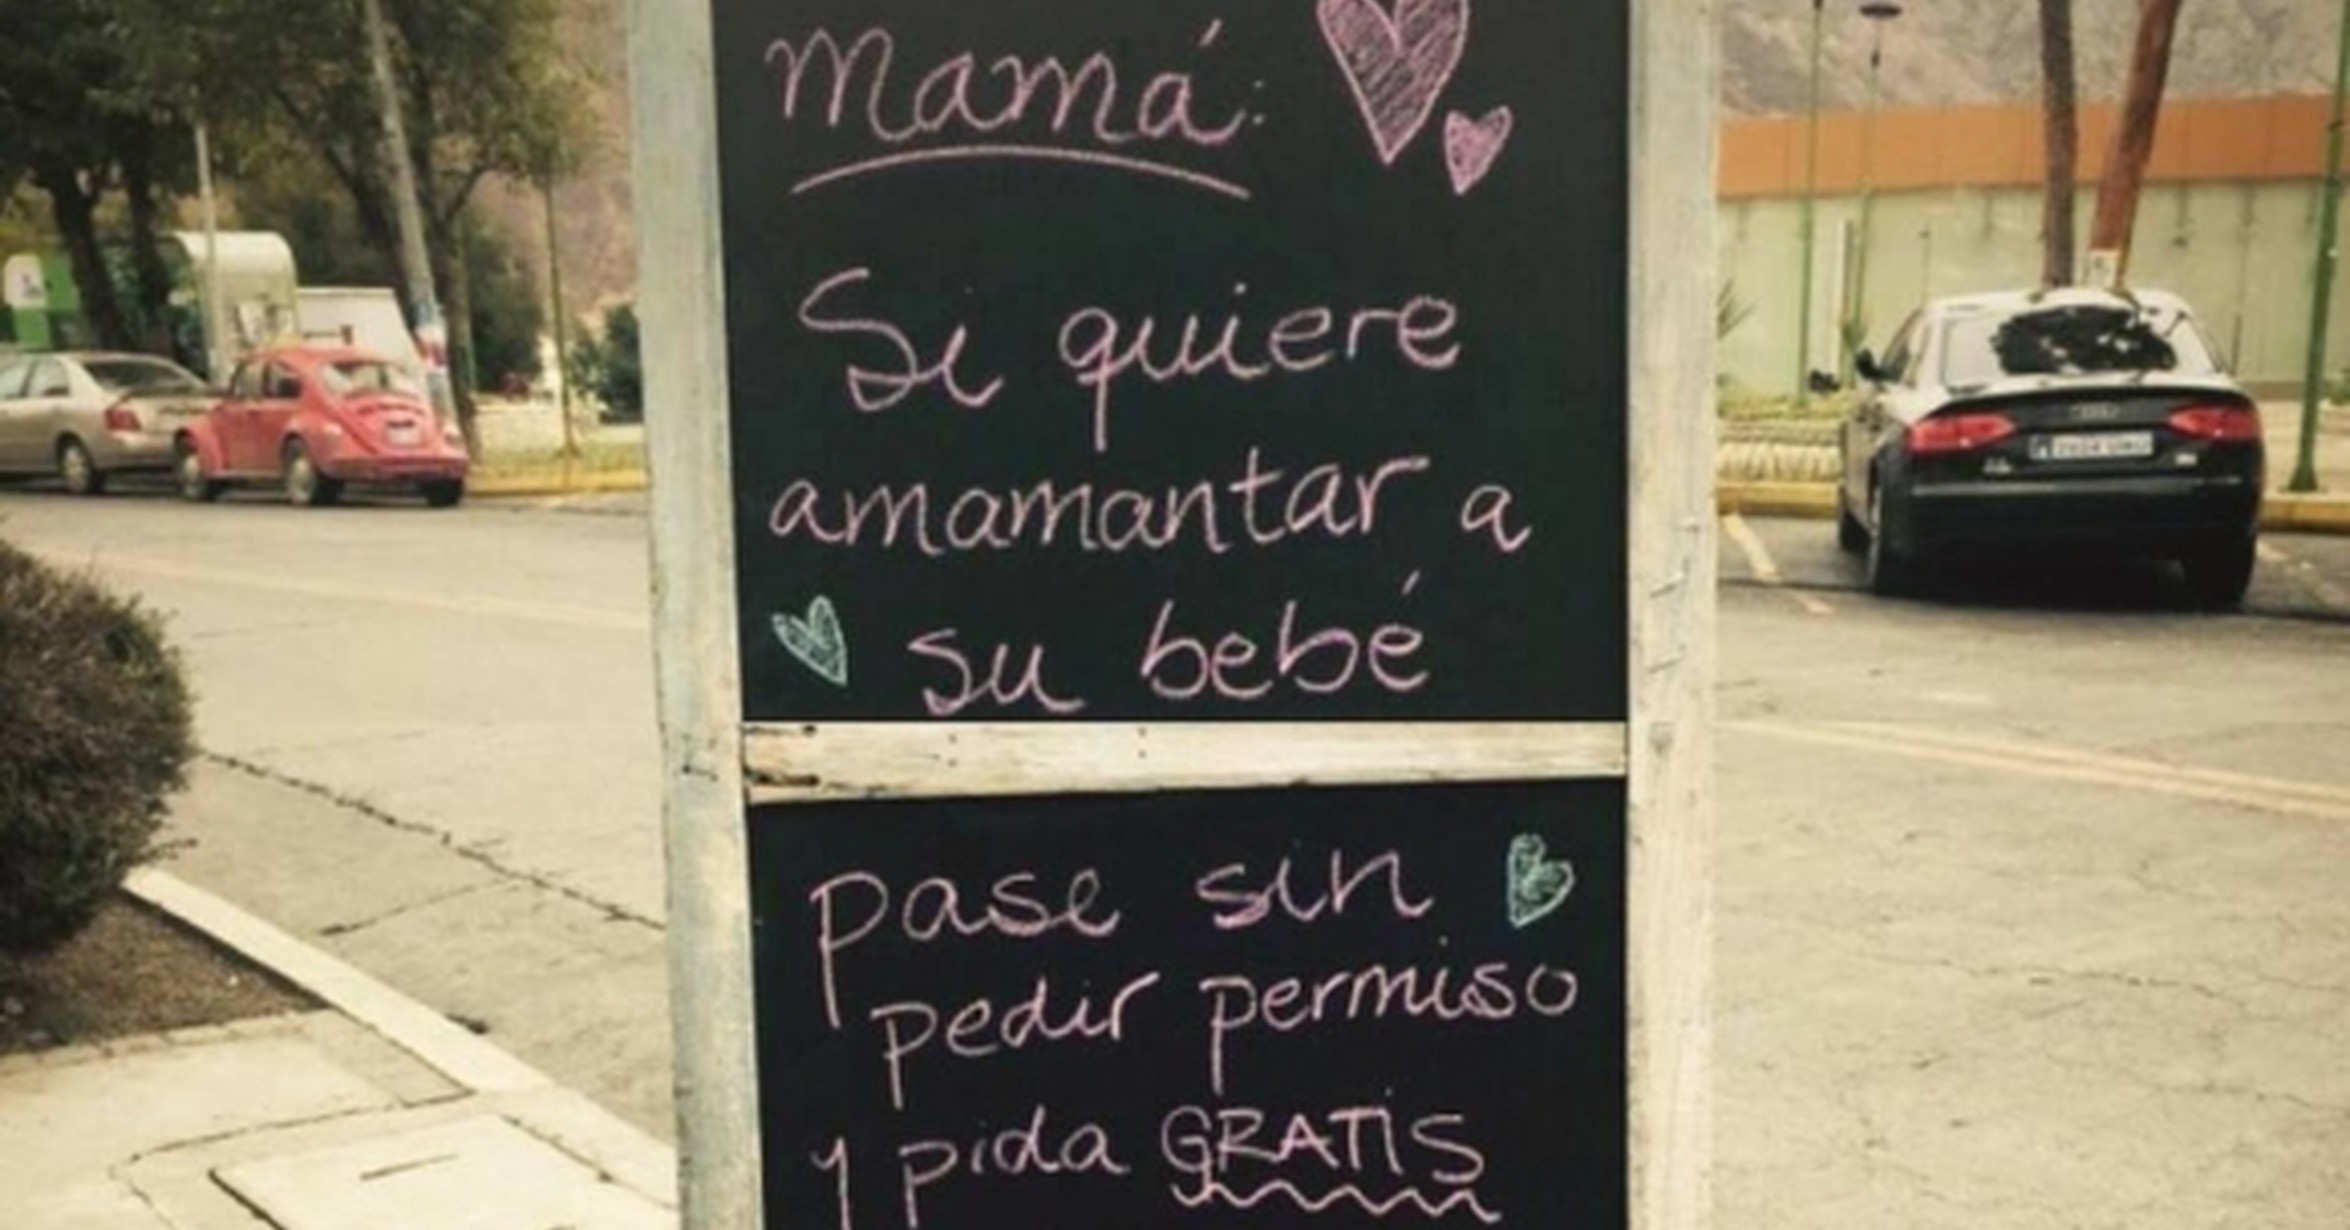 Mamá:
Si quiere
amamantar a
su bebé
pase sin
pedir permiso
y pida GRATIS